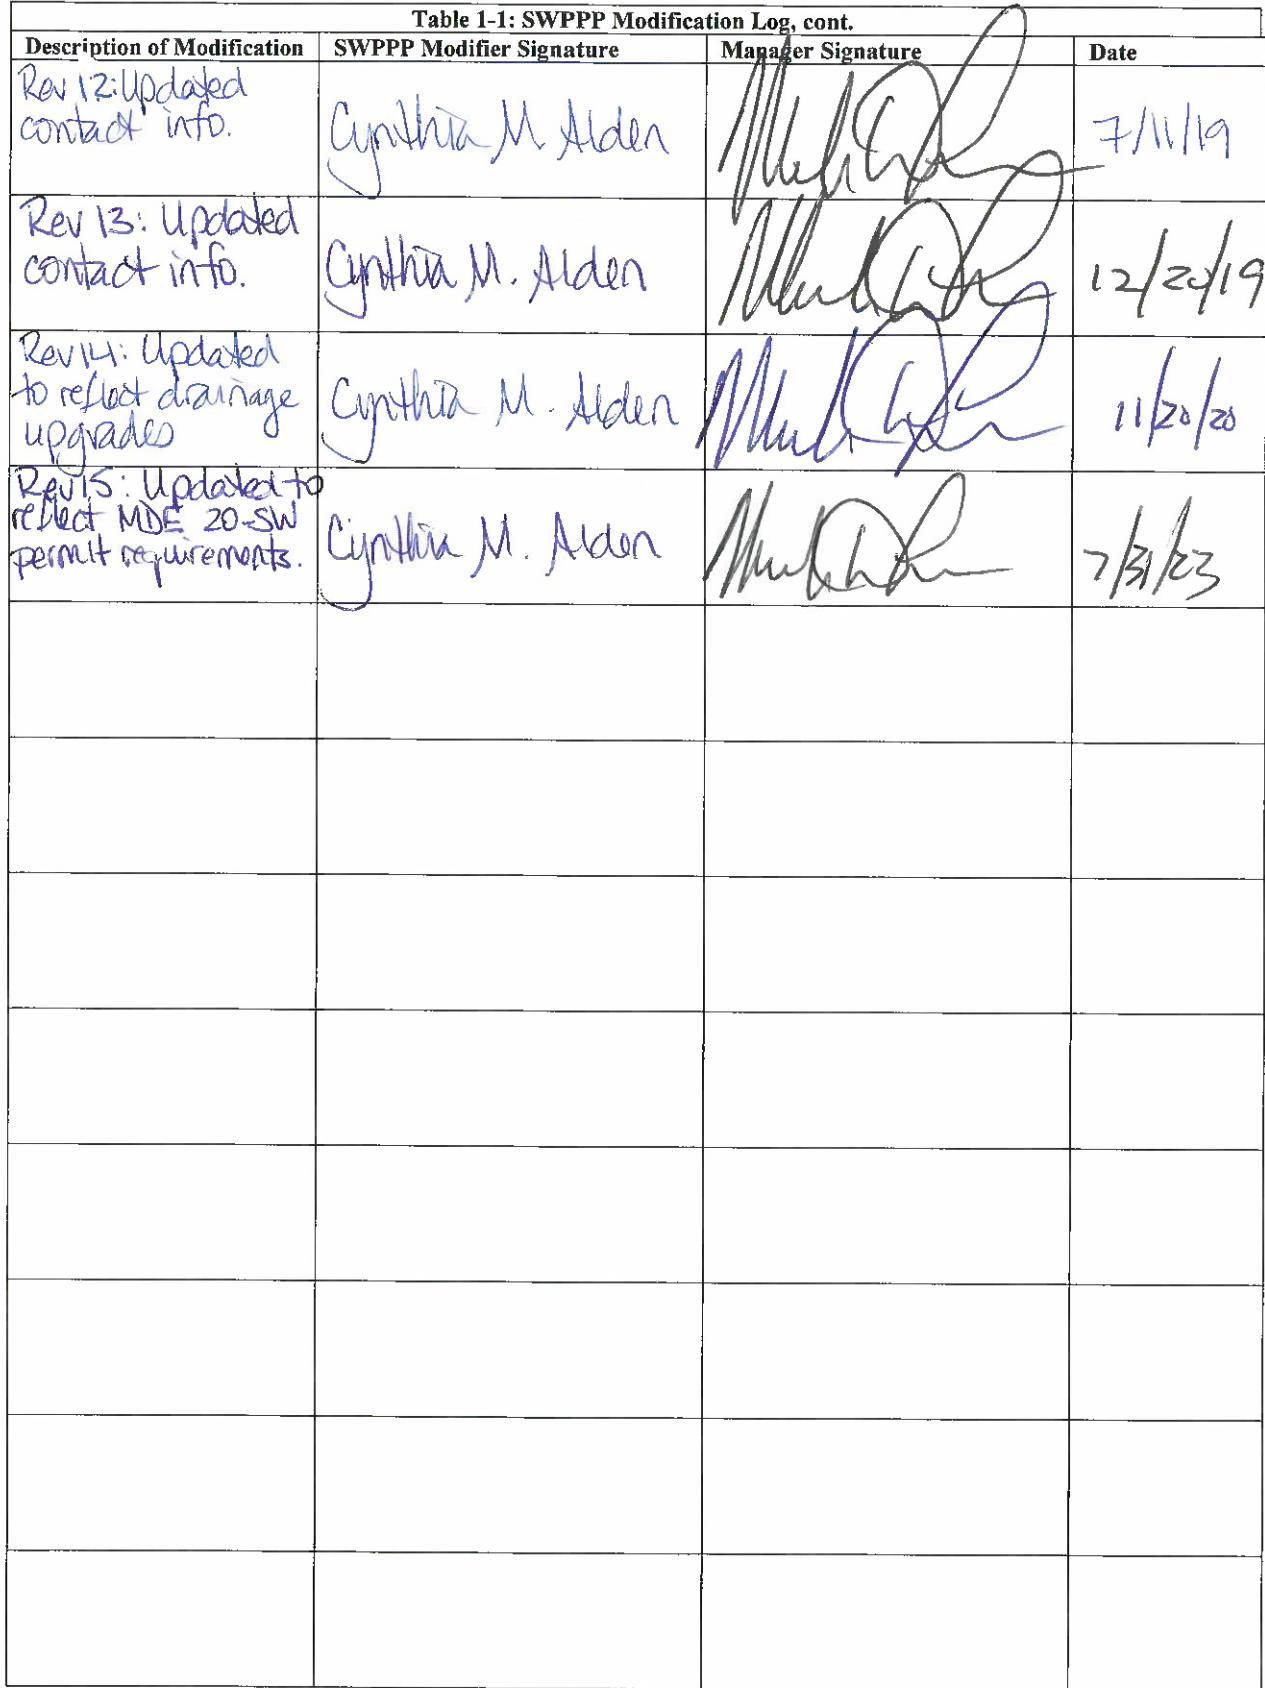 Table 1-1: SWPPP Modification Log, cont.
Description of Modification SWPPP Modifier Signature Manager Signature Date
Rev 12: Updated
contact info.
Cynthia M Alden
7/11/19
Rev 13: Updated
contact info.
Cynthia M. Alden
Rev 14: Updated
to reflect drainage
upgrades
Cynthia M. Alden
11/20/20
Rev 15: Updated to
reflect MDE 20-SW
permit requirements.
Cynthia M. Alden
7/31/23